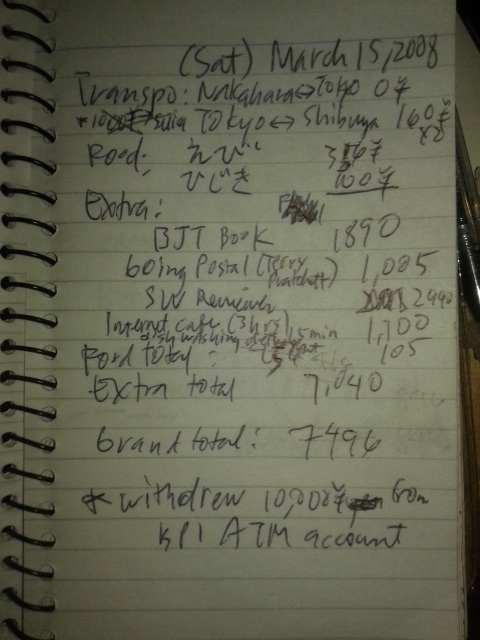 (Sat) March 15, 2008
Transpo: Nakahara↔Tokyo 0¥
Tokyo↔Shibuya 160¥ x2
Food: えび 356¥
ひじき 100¥
Extra:
BJT Book 1890
Going Postal (Terry Pratchett) 1,005
SW Reviewer 2940
Internet cafe (3hrs) 15min 1,100
dish washing 105
Food total:
Extra total 7,040
Grand total: 7496
* withdrew 10,000¥ from
ATM account